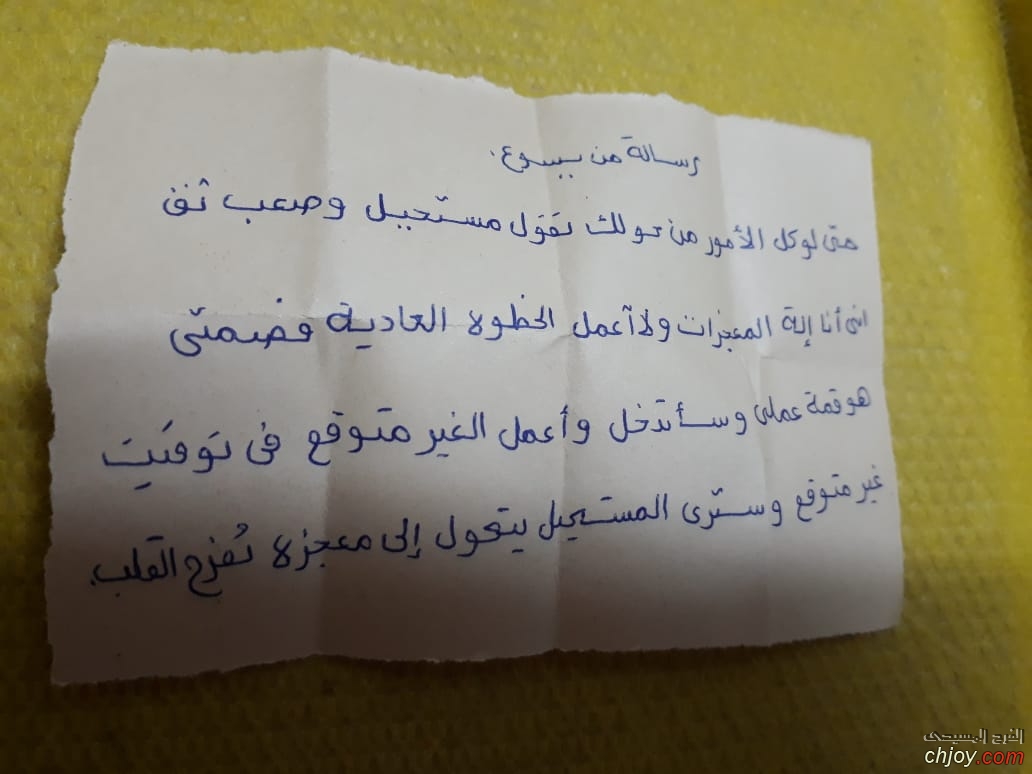 رسالة من يسوع.
حتى لو كل الأمور من حولك تقول مستحيل وصعب ثق
انى أنا إلة المعجزات ولا أعمل الخطوة العادية فصمتى
هو قمة عملى وسأتدخل وأعمل الغير متوقع فى توقيت
غير متوقع وسترى المستحيل يتحول إلى معجزة تُفرح القلب.
الفرح المسيحى
chjoy.com